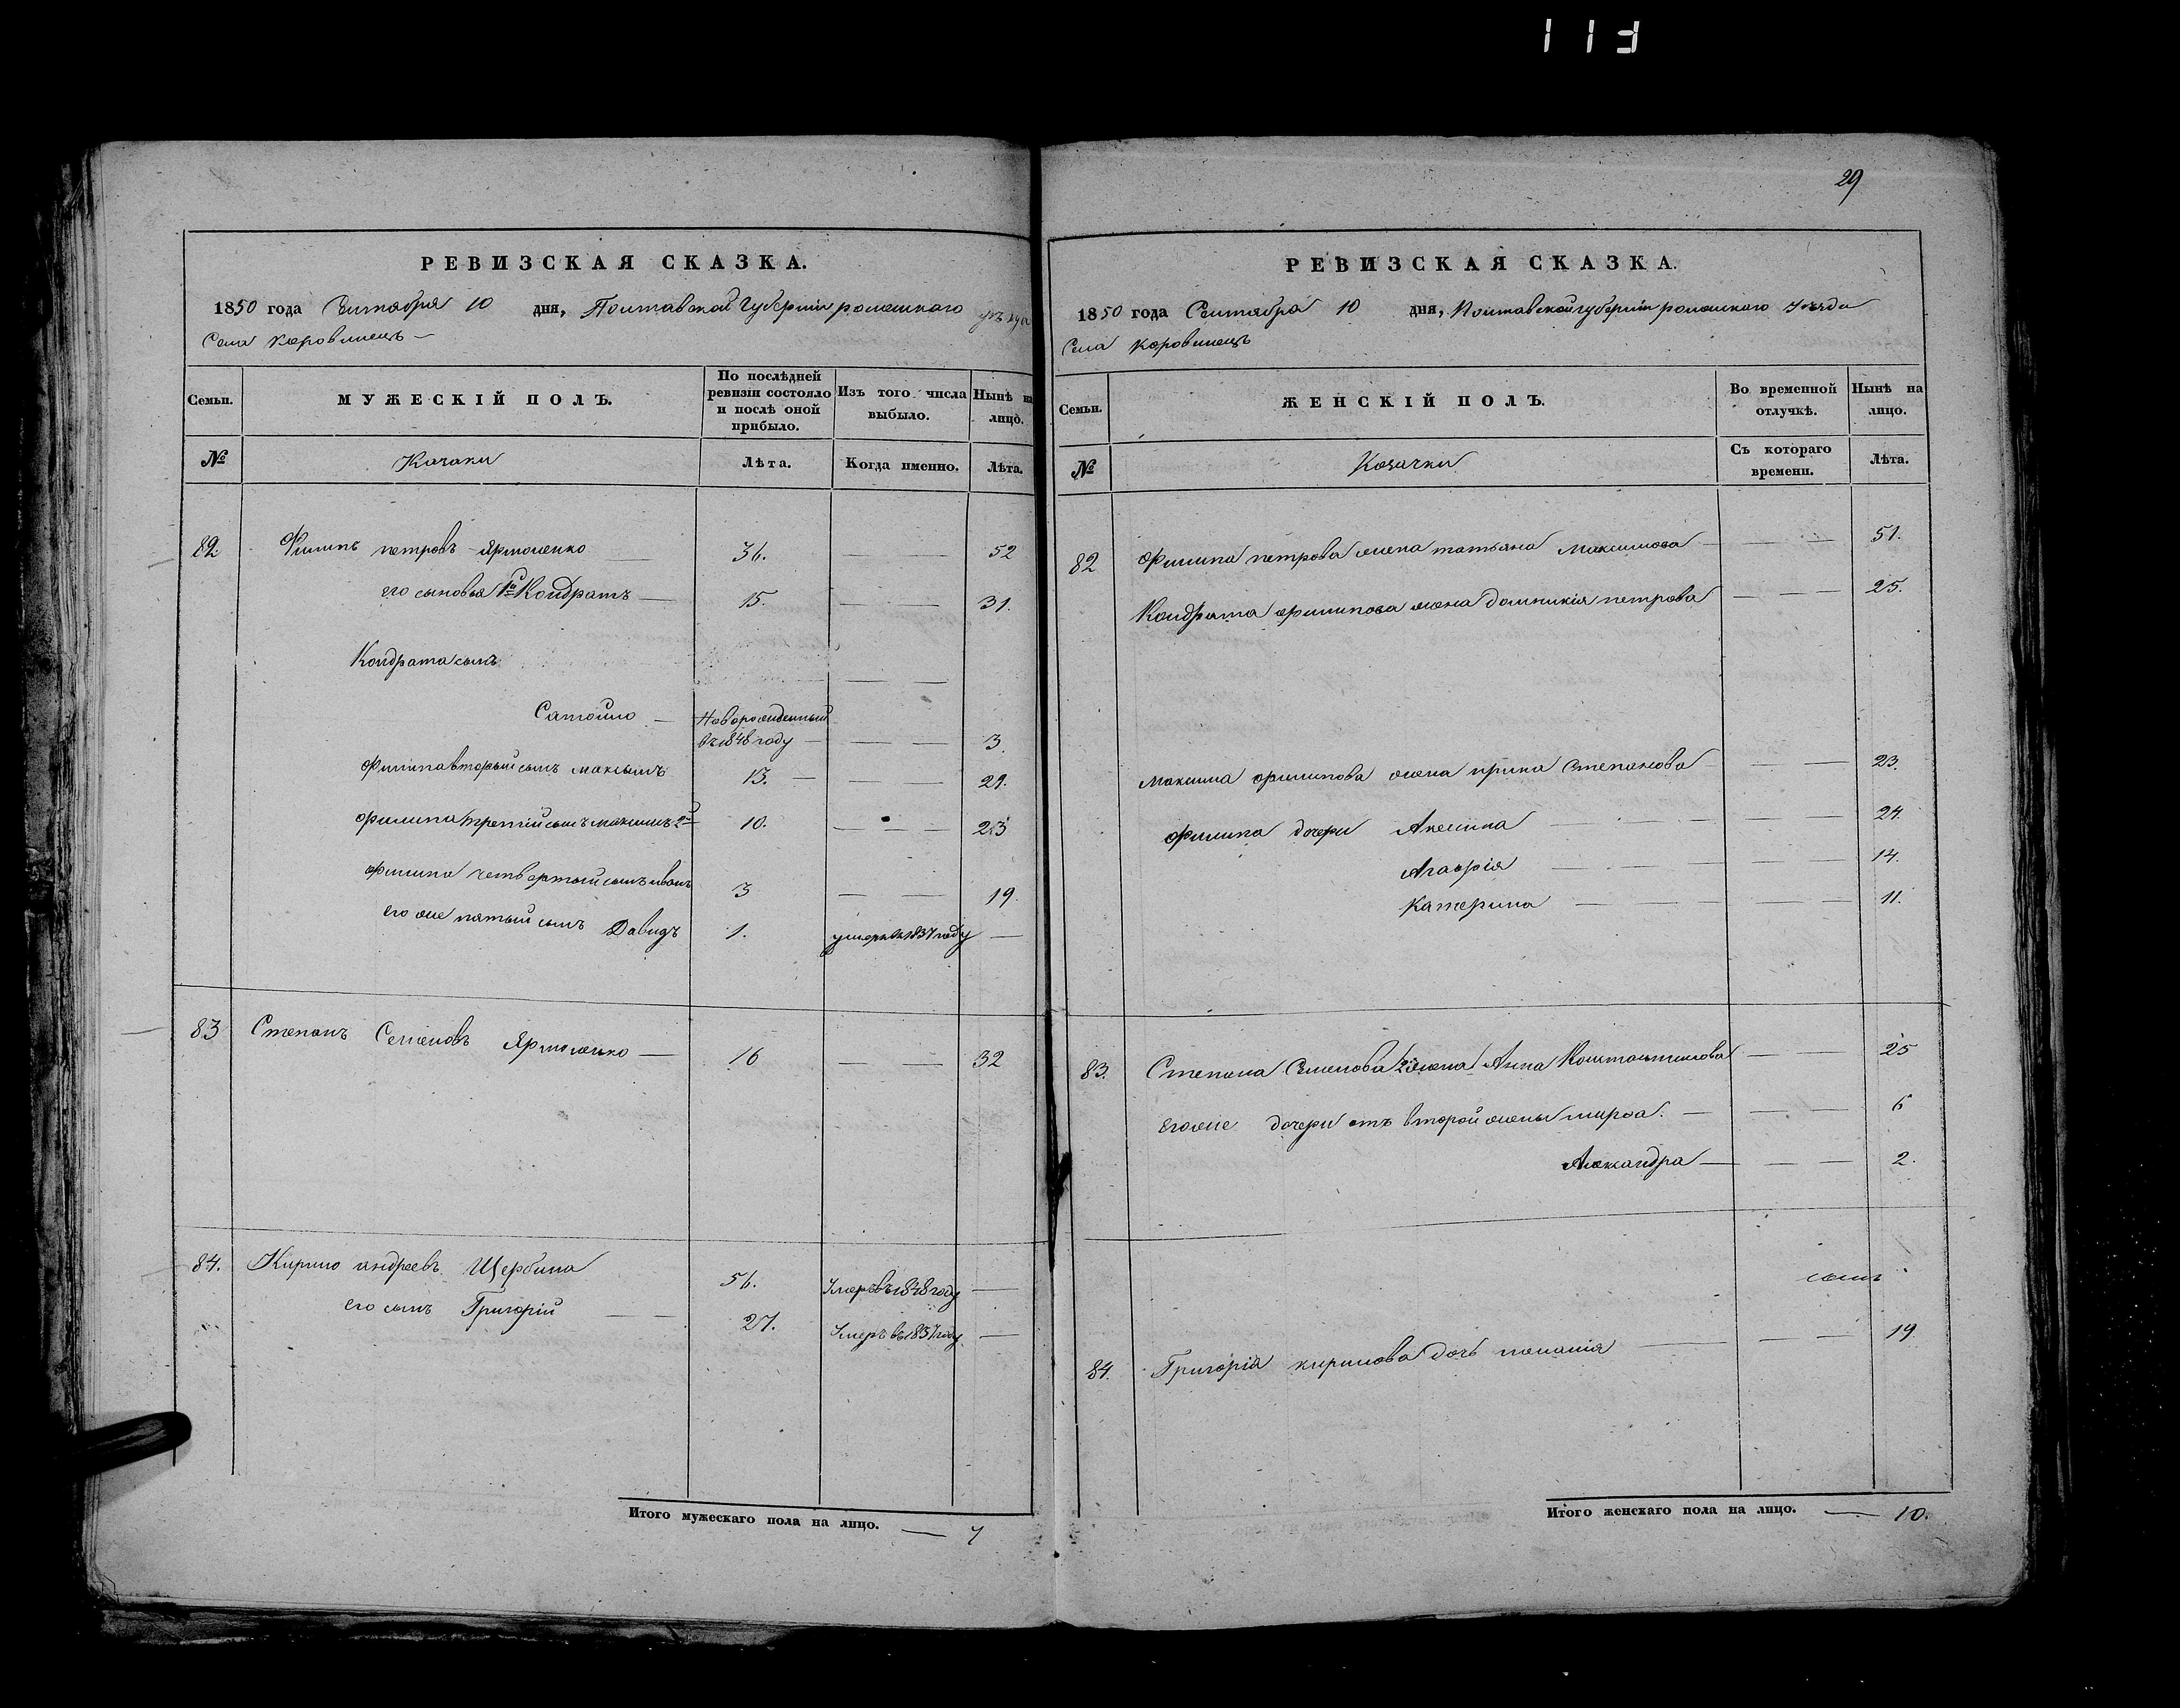 113
29
РЕВИЗСКАЯ СКАЗКА.
1850 года Сентября 10 дня, Полтавской Губерніи роменскаго уѣзда
Села Коровинецъ
Семьи. МУЖЕСКІЙ ПОЛЪ. По послѣдней ревизіи состояло и послѣ оной прибыло. Изъ того числа выбыло. Нынѣ на лицо.
№ Козаки Лѣта. Когда именно. Лѣта.
82. Филипъ петровъ Ярмоленко 36. 52
его сыновья 1й Кондратъ 15. 31.
Кондрата сынъ
Самойло Новорожденный
въ 1848 году 3.
Филипа вторый сынъ максимъ 13. 29.
филипа третій сынъ максимъ 2й 10. 23
филипа четвертый сынъ иванъ 3 19.
его же пятый сынъ Давидъ 1. умеръ въ 1837 году
83 Степанъ Семеновъ Ярмоленко 16 32
84. Кирило андреевъ Щербина 56. Умеръ въ 1848 году
его сынъ Григорій 27. Умеръ въ 1837 году
Итого мужескаго пола на лицо. 7
РЕВИЗСКАЯ СКАЗКА.
1850 года Сентября 10 дня, Полтавской губерніи роменскаго Уѣзда
Села Коровинецъ
Семьи. ЖЕНСКІЙ ПОЛЪ. Во временной отлучкѣ. Нынѣ на лицо.
№ Козачки Съ котораго времени. Лѣта.
82 Филипа петрова жена татьяна Максимова 51.
Кондрата филипова жена домникія петрова 25.
Максима филипова жена ирина Степанова 23.
филипа дочери Акелина 24.
Агафія 14.
Катерина 11.
83. Степана Семенова 2я жена Анна Константинова 25
его же дочери отъ второй жены 6
Александра 2.
84. Григорія кирилова дочь 19
Итого женскаго пола на лицо. 10.